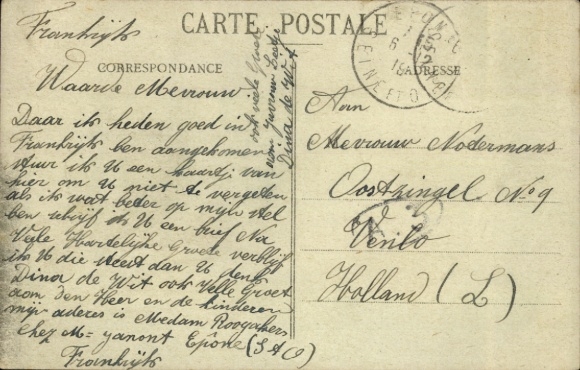 CARTE POSTALE
CORRESPONDANCE
ADRESSE
SEINE ET O
Frankrijk
Waarde Mevrouw
Daar ik heden goed in
Frankrijk ben aangekomen
stuur ik U een kaartje van
hier om U niet te vergeten
als ik wat beter op mijn stel
ben schrijf ik U een brief Na
Veile Hartelijke Groete verblijf
ik U die steest dan U den
Dina de Wit ook Velle Groet
aom den Heer en de kinderen
mijn aderes is Medam Roogakers
Chez Mr yanont Epône (S A O)
Frankrijk
ook viele Groete
van Juvrouw Leatje
Dina de Wit
Aan
Mevrouw Nodermans
Oostzingel No 9
Venlo
Holland (L)